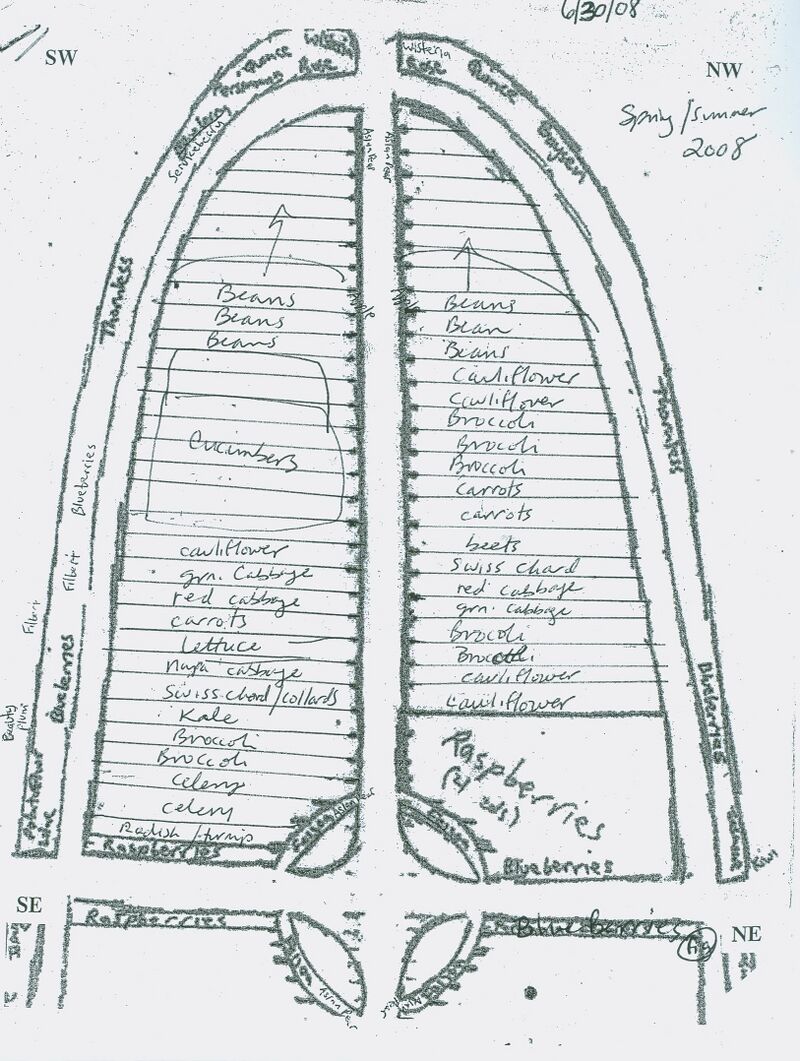 6/30/08
SW
NW
Spring/Summer
2008
Wisteria
Rose
Quince
Persimmons
Serviceberry
Wisteria
Rose
Quince
Asian Pear
Asian Pear
Thornless
Beans
Beans
Beans
Cucumbers
cauliflower
grn. Cabbage
red cabbage
carrots
lettuce
Napa cabbage
Swiss chard/collards
Kale
Broccoli
Broccoli
Celery
Celery
Radish/turnip
Raspberries
Blueberries
Filbert
Filbert
Blueberries
Beauty
plum
Beans
Bean
Beans
Cauliflower
Cauliflower
Broccoli
Broccoli
Broccoli
carrots
carrots
beets
Swiss chard
red cabbage
grn. cabbage
Broccoli
Broccoli
cauliflower
cauliflower
Raspberries
Blueberries
Thornless
Blueberries
Kiwi
SE
NE
Raspberries
Blueberries
Fig